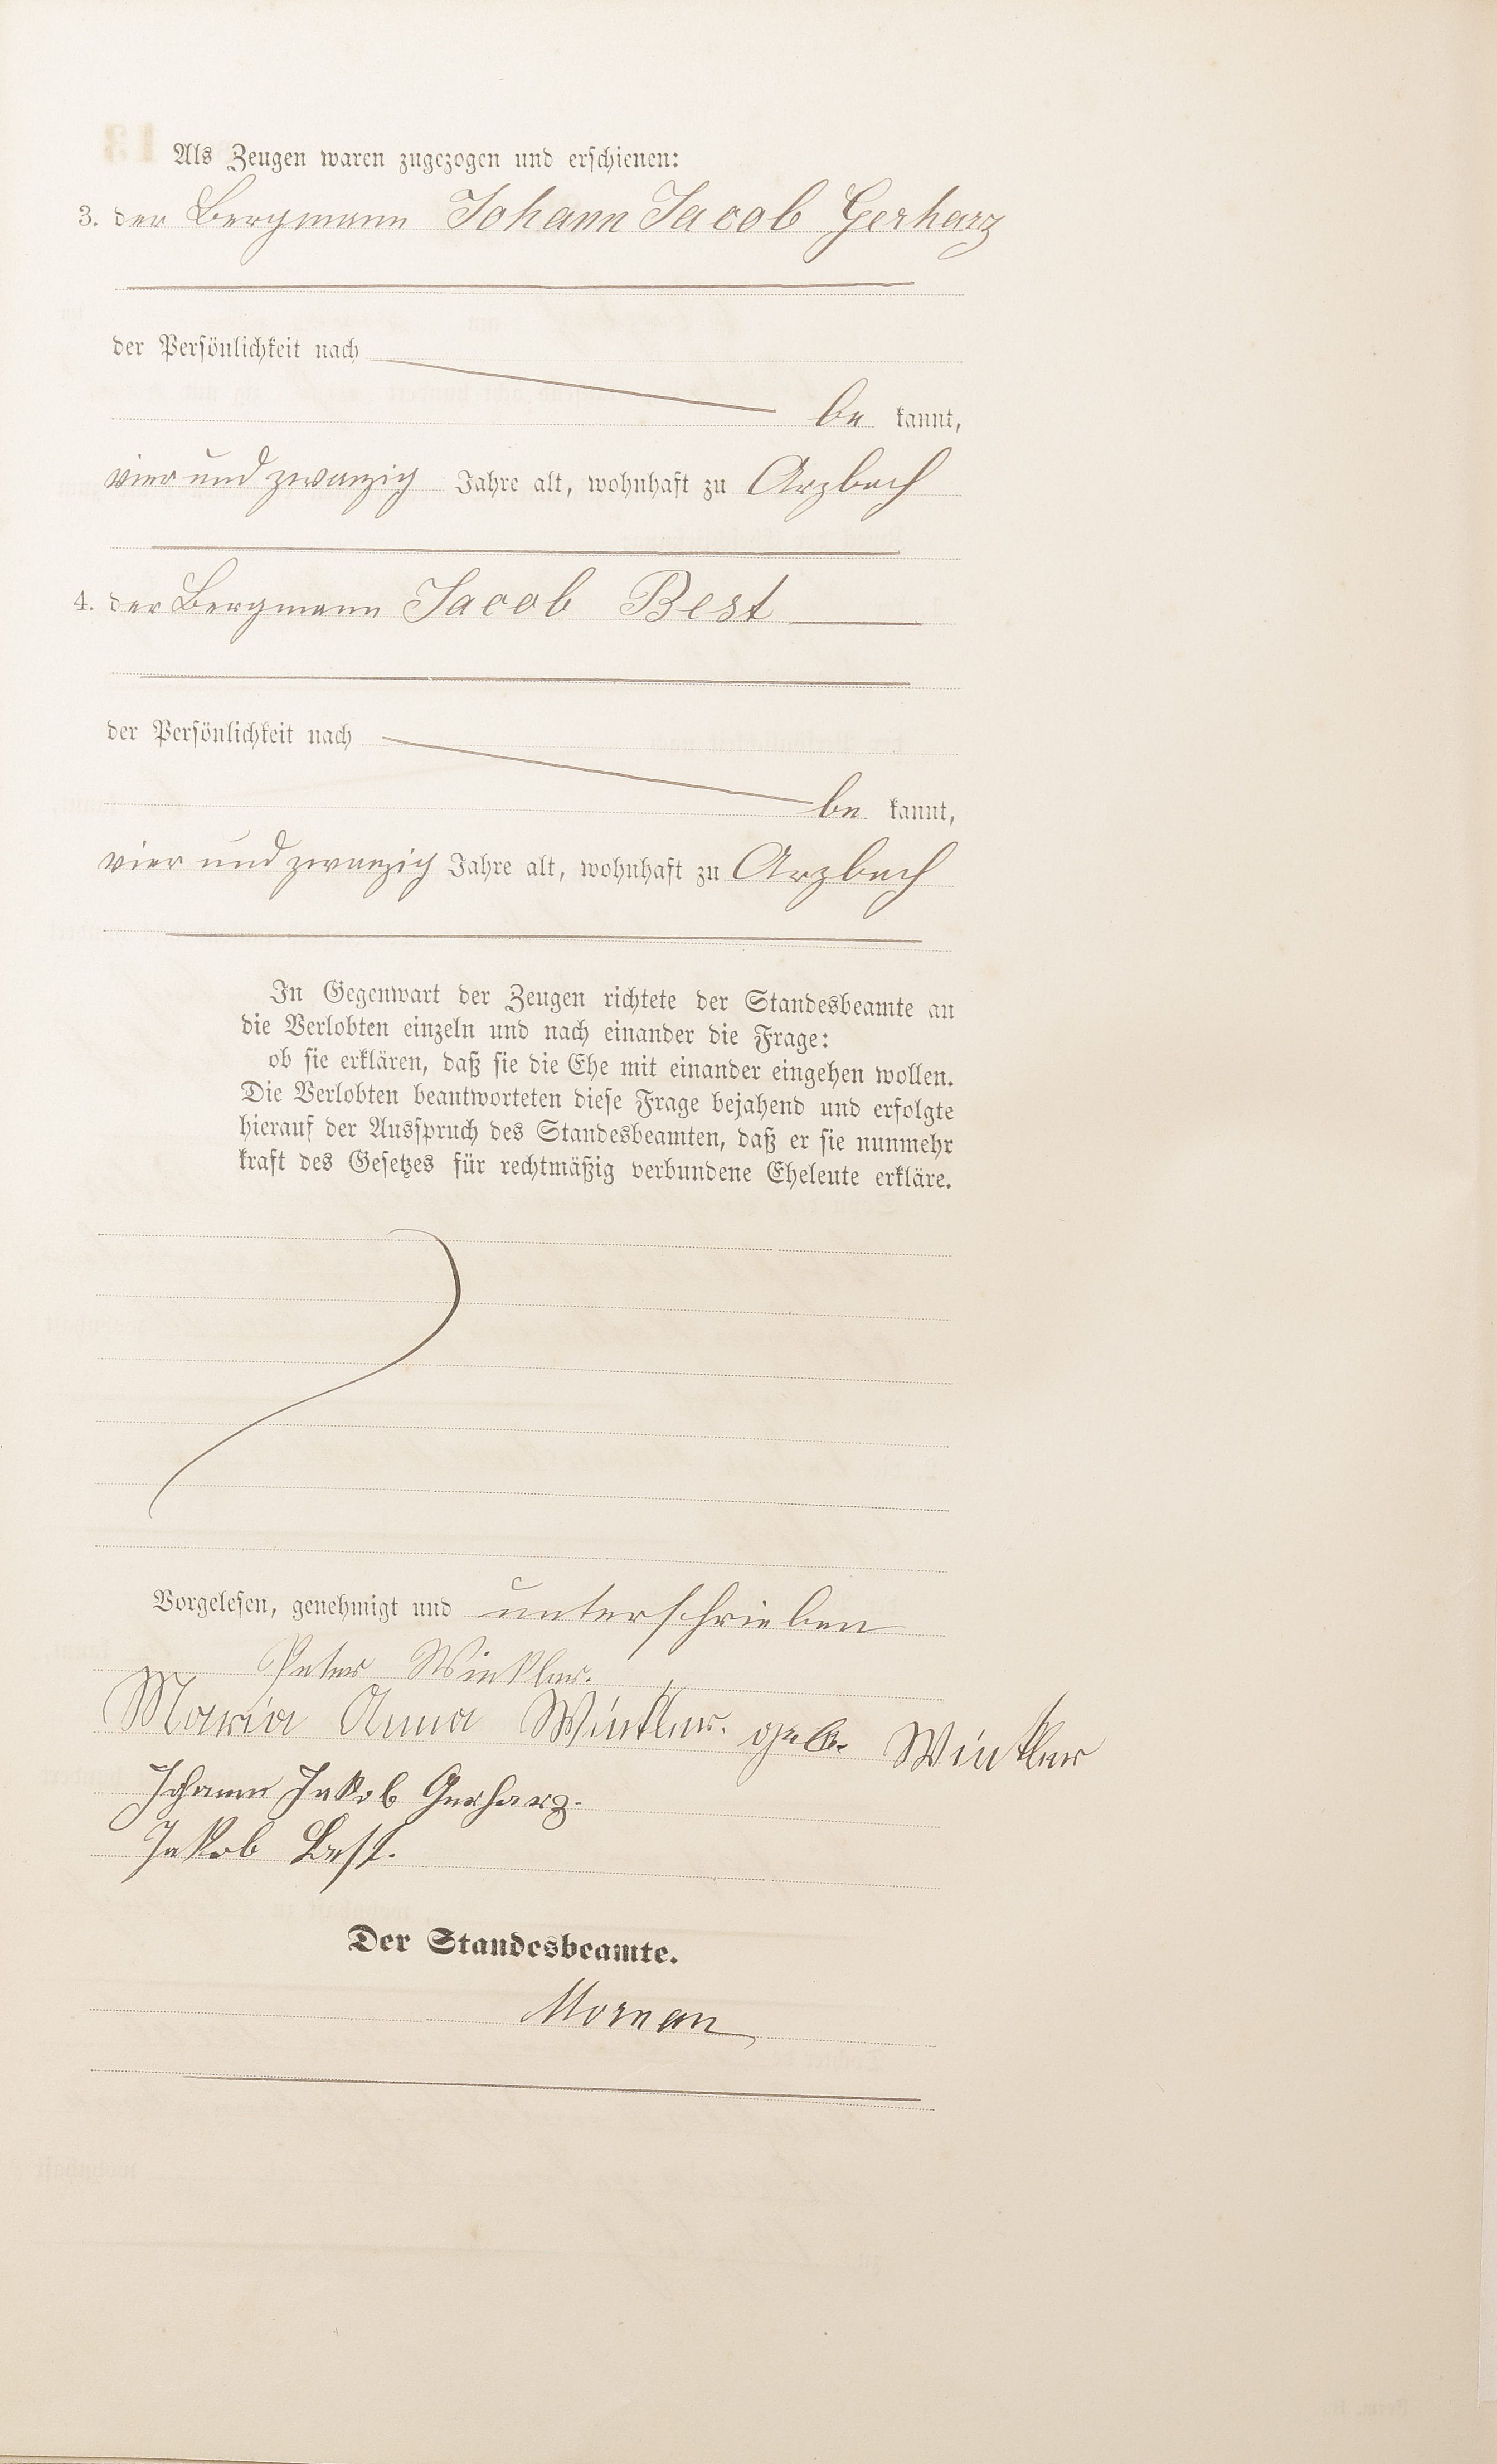 Als Zeugen waren zugezogen und erschienen:
3. der Bergmann Johann Jacob Gerharz
der Persönlichkeit nach
be kannt,
vier und zwanzig Jahre alt, wohnhaft zu Arzbach
4. der Bergmann Jacob Best
der Persönlichkeit nach
be kannt,
vier und zwanzig Jahre alt, wohnhaft zu Arzbach
In Gegenwart der Zeugen richtete der Standesbeamte an
die Verlobten einzeln und nach einander die Frage:
ob sie erklären, daß sie die Ehe mit einander eingehen wollen.
Die Verlobten beantworteten diese Frage bejahend und erfolgte
hierauf der Ausspruch des Standesbeamten, daß er sie nunmehr
kraft des Gesetzes für rechtmäßig verbundene Eheleute erkläre.
Vorgelesen, genehmigt und unterschrieben
Peter Winkler.
Maria Anna Winkler. geb. Winkler
Johann Jakob Gerharz.
Jakob Best.
Der Standesbeamte.